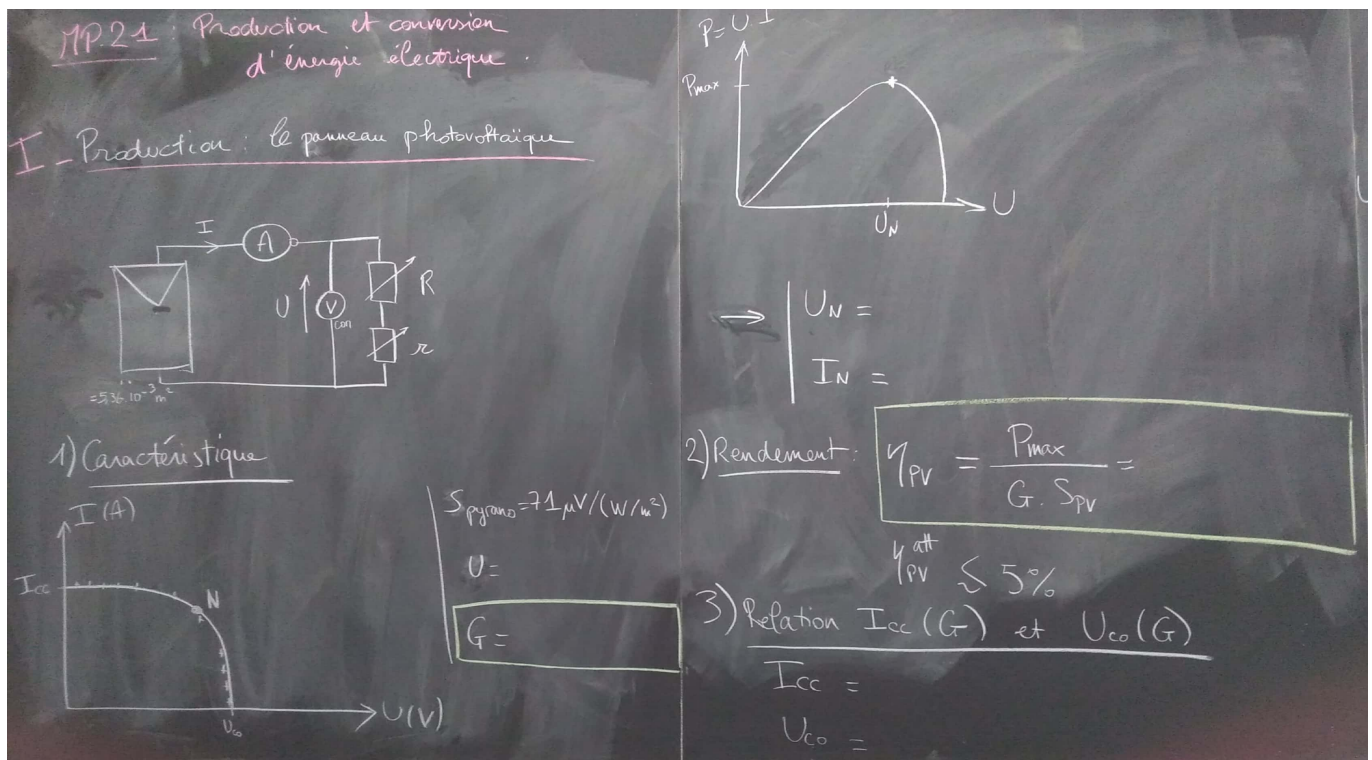 MP.21 : Production et conversion
d'énergie électrique.
I - Production : le panneau photovoltaïque
I
A
U
V
com
R
r
=5,36.10⁻³ m²
1) Caractéristique
I (A)
Icc
N
Uco
U(V)
Spyrano = 71 µV/(W/m²)
U =
G =
P = U.I
Pmax
U
UN
→ UN =
IN =
2) Rendement : ηPV = Pmax / (G. SPV) =
ηPV att ≲ 5%
3) Relation Icc (G) et Uco (G)
Icc =
Uco =